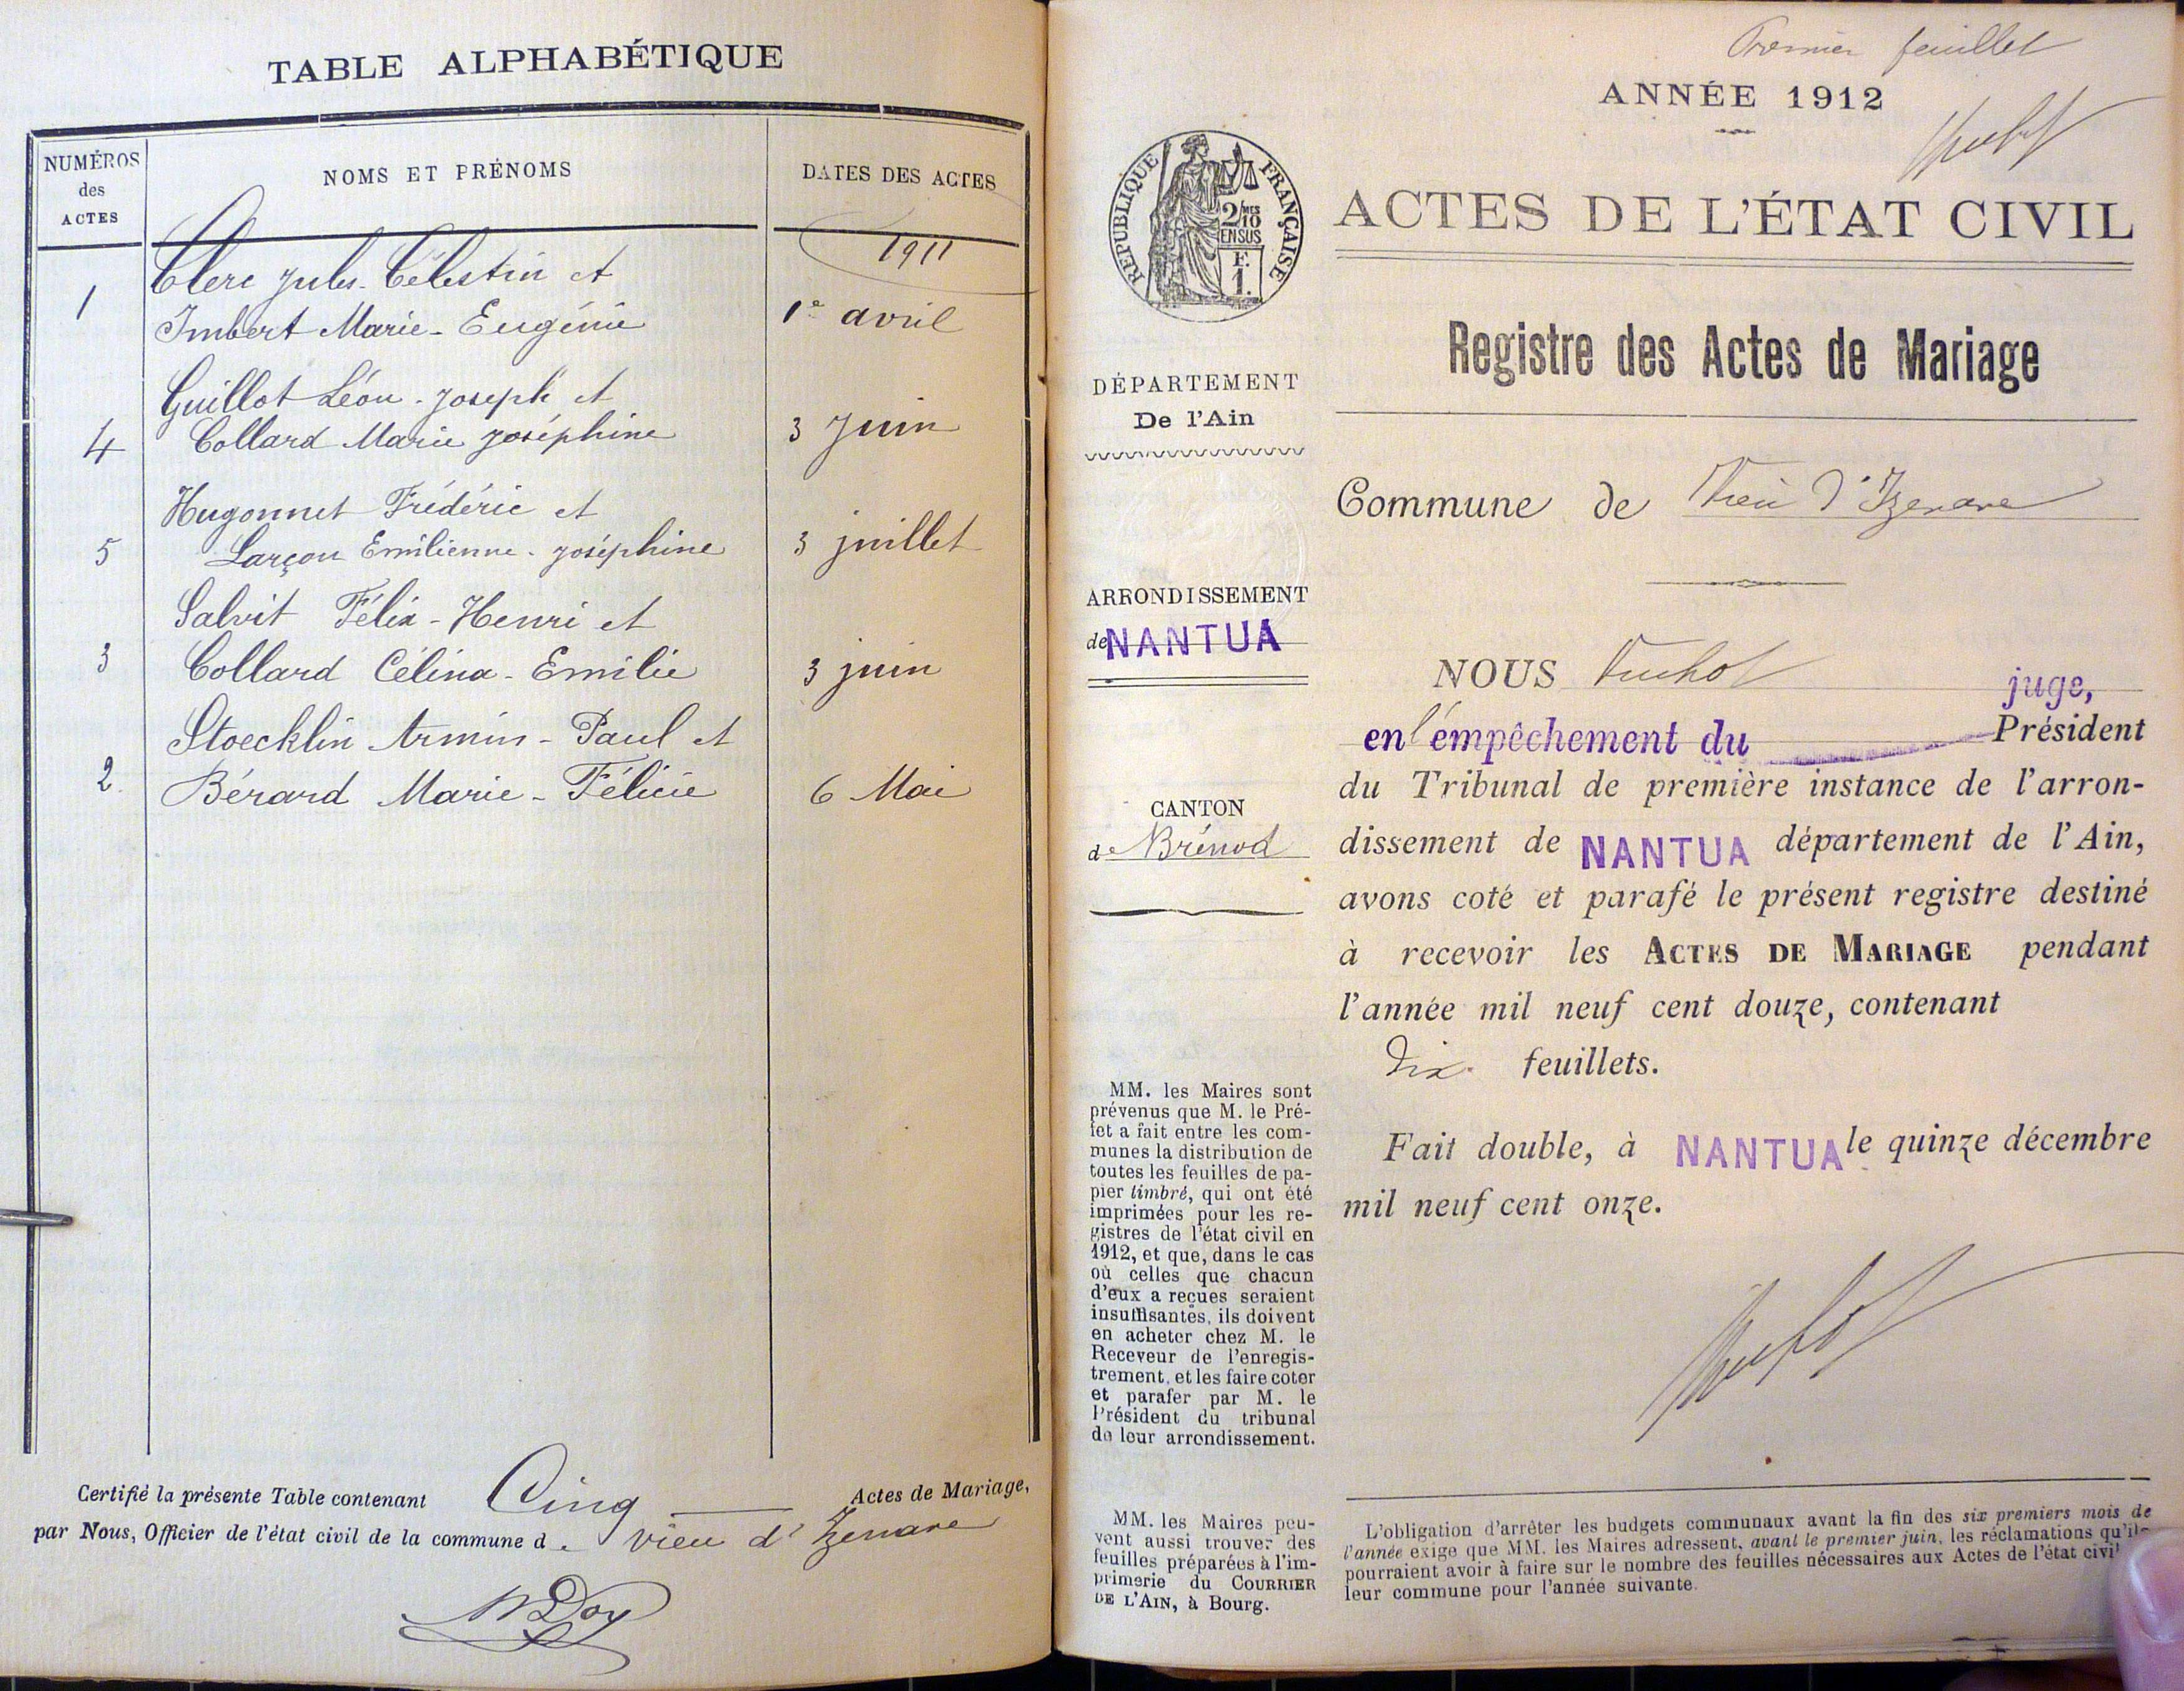 TABLE ALPHABÉTIQUE
NUMÉROS
des
ACTES
NOMS ET PRÉNOMS
DATES DES ACTES
1911
Clerc Jules-Célestin et
1 Imbert Marie-Eugénie 1e avril
Guillot Léon-Joseph et
4 Collard Marie Joséphine 3 Juin
Hugonnet Frédéric et
5 Larçon Emilienne-Joséphine 3 juillet
Salvit Félix-Henri et
3 Collard Célina-Emilie 3 juin
Stoecklin Armin-Paul et
2 Bérard Marie-Félicie 6 Mai
Certifié la présente Table contenant Cinq Actes de Mariage,
par Nous, Officier de l'état civil de la commune d. vieu d'Izenave
Premier feuillet
ANNÉE 1912
RÉPUBLIQUE FRANÇAISE
2/10MES
EN SUS
F.
1.
ACTES DE L'ÉTAT CIVIL
Registre des Actes de Mariage
DÉPARTEMENT
De l'Ain
Commune de Vieu d'Izenave
ARRONDISSEMENT
de NANTUA
CANTON
de Brénod
NOUS juge,
en l'empêchement du Président
du Tribunal de première instance de l'arron-
dissement de NANTUA département de l'Ain,
avons coté et parafé le présent registre destiné
à recevoir les ACTES DE MARIAGE pendant
l'année mil neuf cent douze, contenant
Dix feuillets.
Fait double, à NANTUA le quinze décembre
mil neuf cent onze.
MM. les Maires sont
prévenus que M. le Pré-
fet a fait entre les com-
munes la distribution de
toutes les feuilles de pa-
pier timbré, qui ont été
imprimées pour les re-
gistres de l'état civil en
1912, et que, dans le cas
où celles que chacun
d'eux a reçues seraient
insuffisantes, ils doivent
en acheter chez M. le
Receveur de l'enregis-
trement, et les faire coter
et parafer par M. le
Président du tribunal
de leur arrondissement.
MM. les Maires peu-
vent aussi trouver des
feuilles préparées à l'im-
primerie du COURRIER
DE L'AIN, à Bourg.
L'obligation d'arrêter les budgets communaux avant la fin des six premiers mois de
l'année exige que MM. les Maires adressent, avant le premier juin, les réclamations qu'ils
pourraient avoir à faire sur le nombre des feuilles nécessaires aux Actes de l'état civil
leur commune pour l'année suivante.